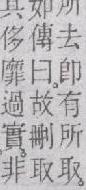 所去卽有所取。
如傳曰。故刪取
其侈靡過實。非